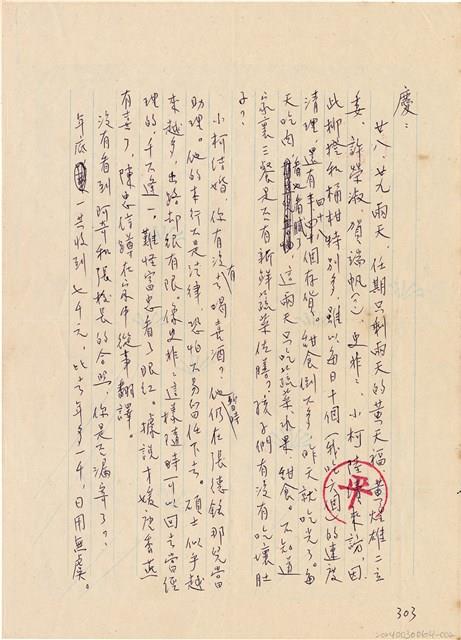 慶：
廿八、廿九兩天，任期只剩兩天的黃天福、黃煌雄二立
委，許榮淑、賀端帆（？）、史非非、小柯陸續來訪，因
此椪柑和桶柑特別多，雖以每日十個（我吃六個）的速度
清理，還有四十個存貨。甜食倒不多，昨天就吃光了。每
天吃肉看也看膩了，這兩天只吃蔬菜水果、甜食。不知道
家裏三餐是不有新鮮蔬菜佐膳？孩子們有沒有吃壞肚
子？
小柯結婚，你有沒有去喝喜酒？他仍暫時在張德銘那兒當
助理。他的本行不是法律，恐怕不易留任下去。碩士似乎越
來越多，出路却很有限。像史非非這樣隨時可以回去當經
理的千不逢一，難怪富忠看了眼紅。據說才媛唐香燕
有喜了，陳忠信躲在家中從事翻譯。
沒有看到阿草和張校長的合照，你是不漏寄了？
年底一共收到七千元，比去年多一千，日用無虞。
303